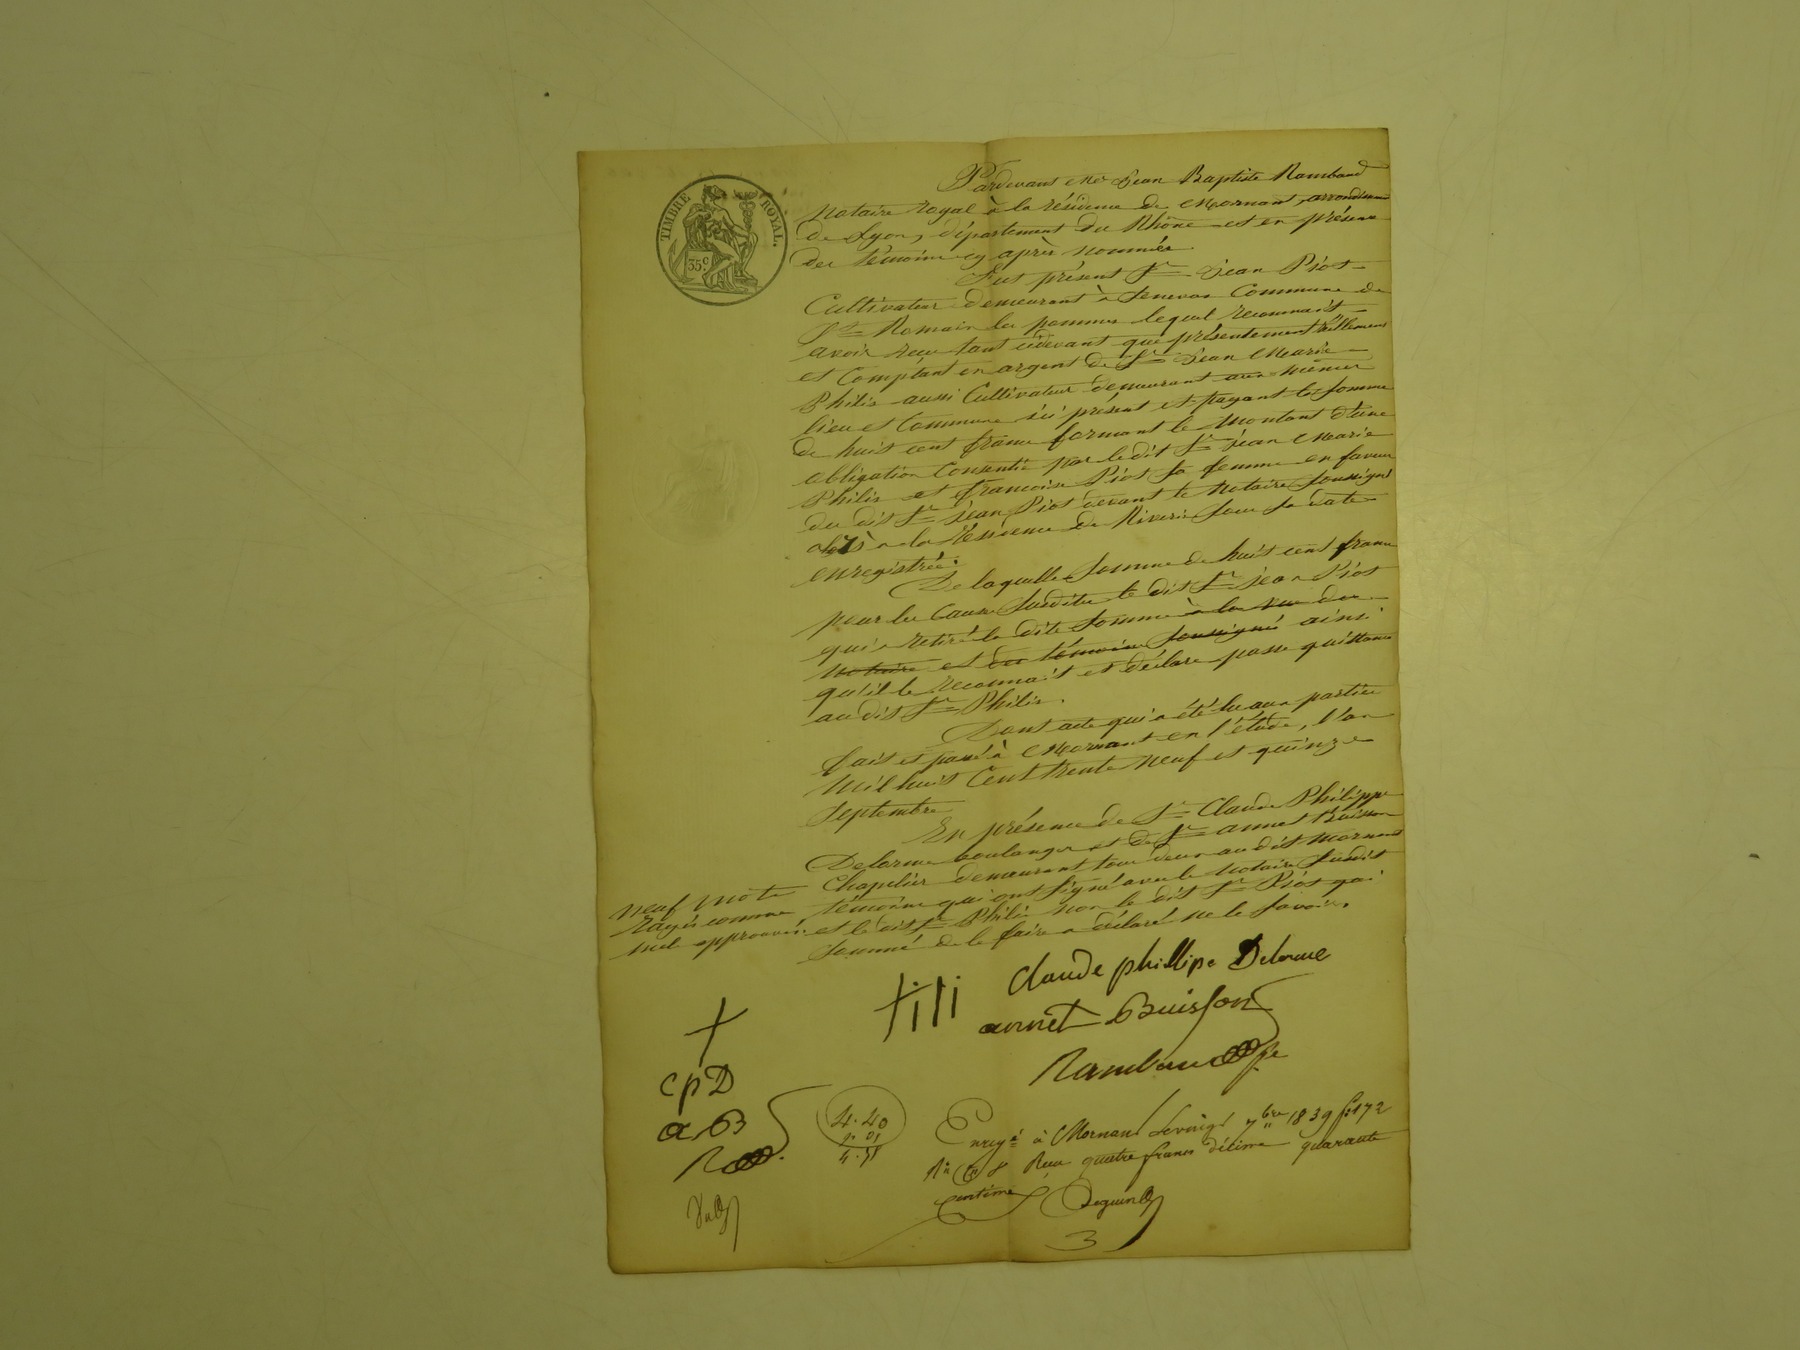 TIMBRE ROYAL.
35 c.
Pardevant Me Jean Baptiste Rambaud
notaire royal à la résidence de Mornant, arrondissement
de Lyon, département du Rhône et en présence
des témoins cy après nommés
Fut présent Sr Jean Piot
Cultivateur demeurant à Commune de
St Romain les pommes lequel reconnait
avoir reçu tant cidevant que présentement réellement
et Comptant en argent de Sr Jean Marie
Philis aussi Cultivateur demeurant aux mêmes
lieu et Commune ici présent et payant la somme
de huit cent francs formant le montant d'une
obligation Consentie par le dit Sr jean Marie
Philis et françoise Piot sa femme en faveur
du dit Sr jean Piot devant le Notaire soussigné
alors à la résidence de Riverie sous sa date
enregistrée.
De laquelle somme de huit cent francs
pour les Causes susdites le dit Sr jean Piot
qui a retiré la dite somme à la vue des
notaire et des témoins soussignés ainsi
qu'il le reconnait et déclare passe quittance
au dit Sr Philis.
Dont acte qui a été lu aux parties
fait et passé à Mornant en l'étude, l'an
mil huit Cent trente neuf et quinze
septembre
En présence de Sr Claude Philippe
Delorme boulanger et de Sr annet Buisson
Chapelier demeurant tous deux au dit Mornant
témoins qui ont signé avec le notaire susdit
et le dit Sr Philis non le dit Sr Piot qui
sommé de le faire a déclaré ne le savoir.
neuf mots
rayés comme
nul approuvés
Claude phillipe Delorme
annet Buisson
Rambaud
cpD
a B
4.40
Enregé à Mornant le vingt 7bre 1839 fo 172
Ro Reçu quatre francs décime quarante
centimes
3